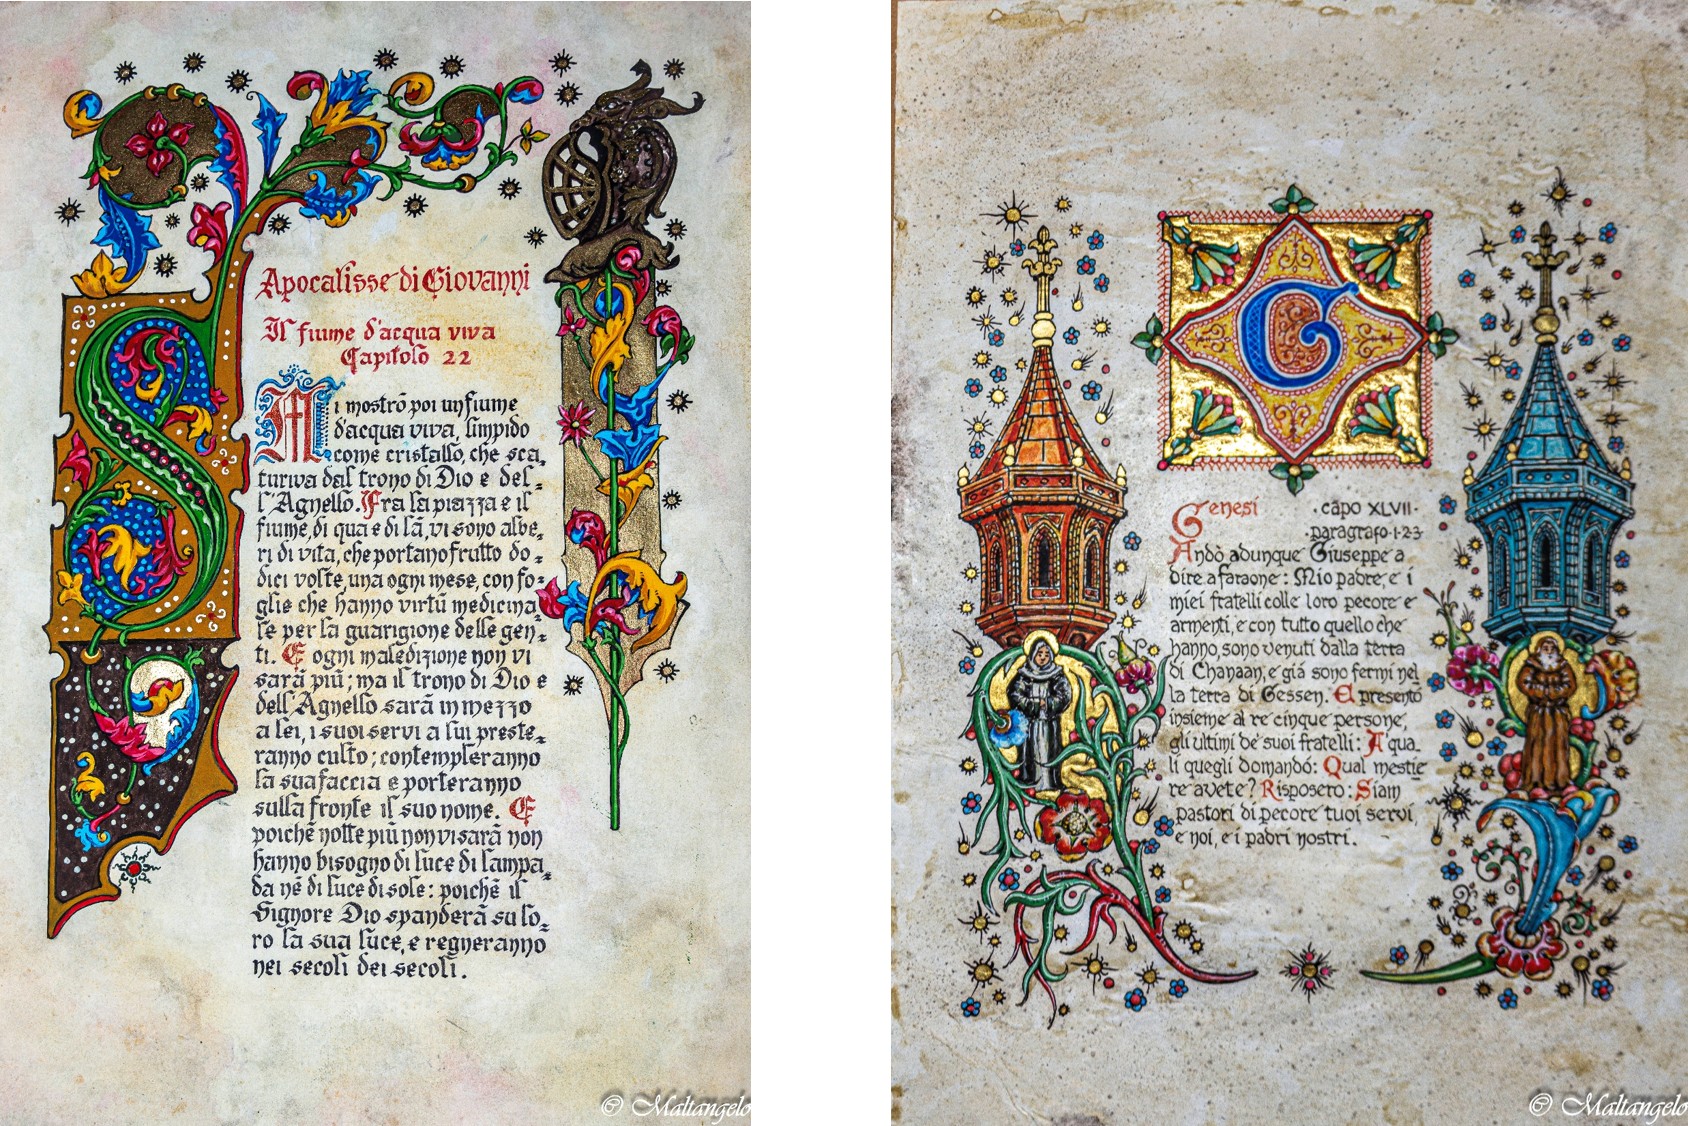 Apocalisse di Giovanni
Il fiume d'acqua viva
Capitolo 22
Mi mostrò poi un fiume
d'acqua viva, limpido
come cristallo, che sca-
turiva dal trono di Dio e del-
l'Agnello. Fra la piazza e il
fiume, di qua e di là, vi sono albe-
ri di vita, che portano frutto do-
dici volte, una ogni mese, con fo-
glie che hanno virtù medicina-
le per la guarigione delle gen-
ti. E ogni maledizione non vi
sarà più; ma il trono di Dio e
dell'Agnello sarà in mezzo
a lei, i suoi servi a lui preste-
ranno culto; contempleranno
la sua faccia e porteranno
sulla fronte il suo nome. E
poichè notte più non vi sarà non
hanno bisogno di luce di lampa-
da nè di luce di sole: poichè il
Signore Dio spanderà su lo-
ro la sua luce, e regneranno
nei secoli dei secoli.
© Maltangelo
G
Genesi · capo XLVII ·
paragrafo · 1 · 2 · 3
Andò adunque Giuseppe a
dire a faraone: Mio padre, e i
miei fratelli colle loro pecore e
armenti, e con tutto quello che
hanno, sono venuti dalla terra
di Chanaan, e già sono fermi nel
la terra di Gessen. E presentò
insieme al re cinque persone,
gli ultimi de' suoi fratelli: A' qua-
li quegli domandò: Qual mestie
re avete? Risposero: Siam
pastori di pecore tuoi servi,
e noi, e i padri nostri.
© Maltangelo